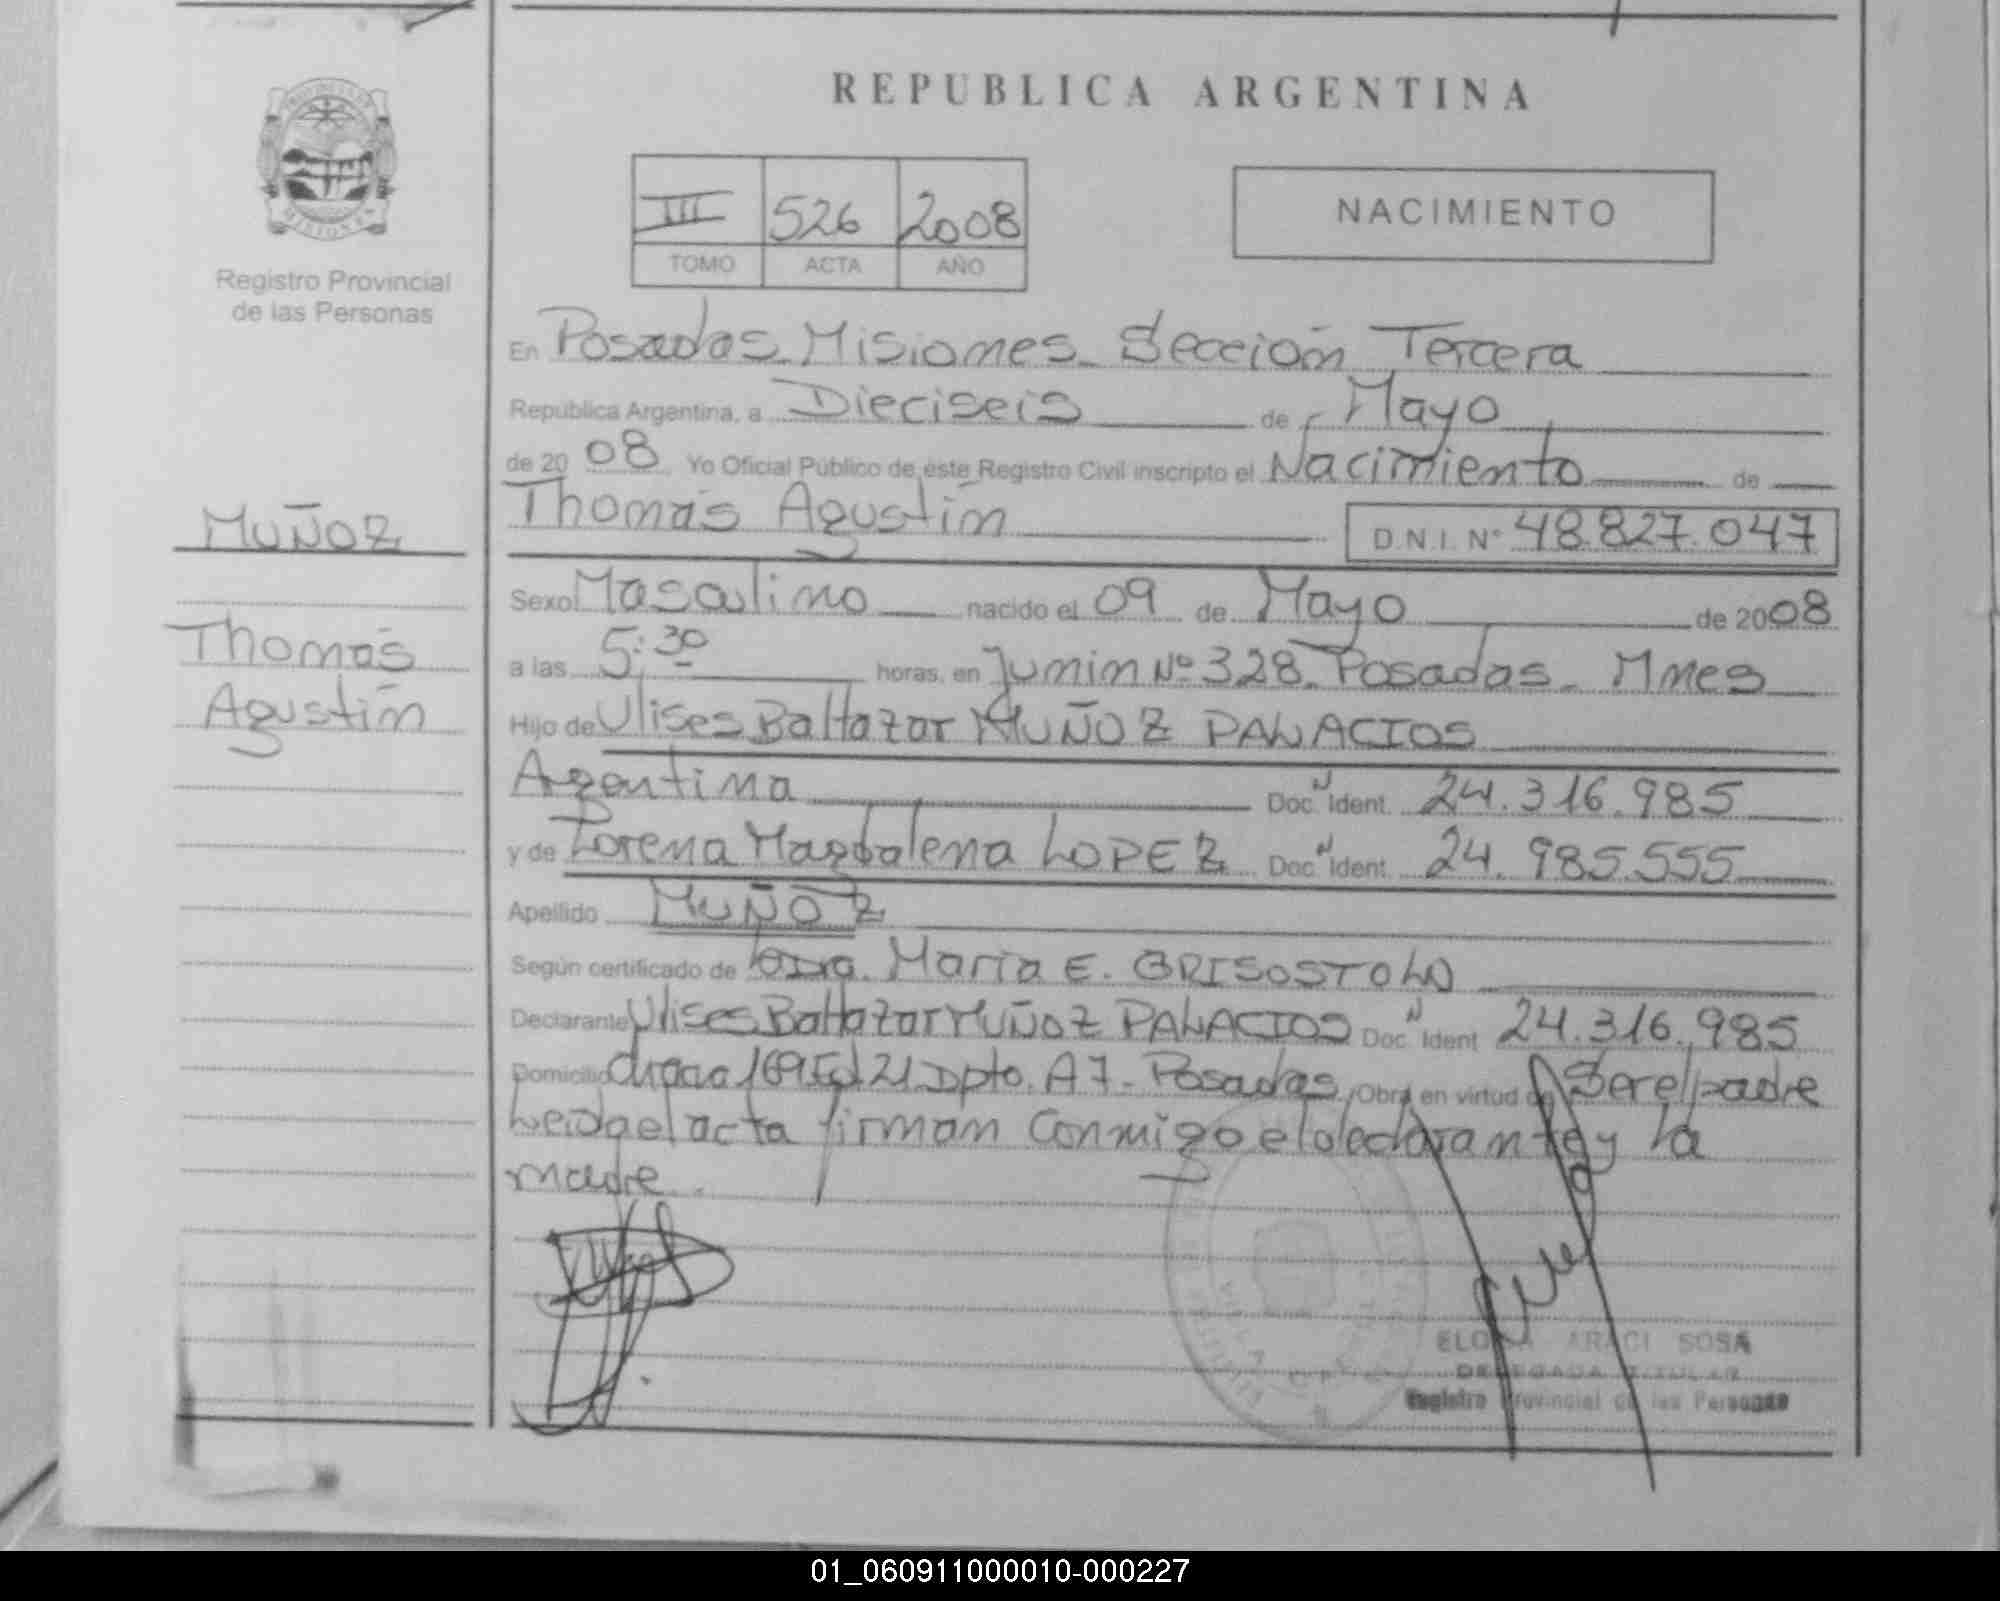 REPUBLICA ARGENTINA
III 526 2008
TOMO ACTA AÑO
NACIMIENTO
Registro Provincial
de las Personas
MUÑOZ
Thomás
Agustín
En Posadas Misiones Sección Tercera
República Argentina, a Dieciseis de Mayo
de 20 08 Yo Oficial Público de éste Registro Civil inscripto el Nacimiento de
Thomás Agustín D.N.I. Nº 48.827.047
Sexo Masculino nacido el 09 de Mayo de 2008
a las 5:30 horas, en Junin Nº 328. Posadas - Mnes
Hijo de Ulises Baltazar MUÑOZ PALACIOS
Argentina Doc. Ident. 24.316.985
y de Lorena Magdalena LOPEZ Doc. Ident. 24.985.555
Apellido MUÑOZ
Según certificado de Dra. Maria E. GRISOSTOLO
Declarante Ulises Baltazar MUÑOZ PALACIOS Doc. Ident 24.316.985
Domicilio 21 Dpto. A7 - Posadas /Obra en virtud de Ser el padre
Leida el acta firman Conmigo el declarante y la
madre.
ELOSA ARACI SOSA
DELEGADA TITULAR
Registro Provincial de las Personas
01_060911000010-000227